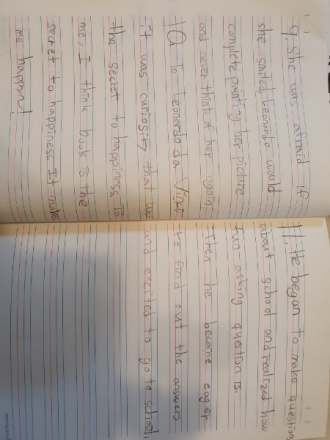 9) She was afraid if
she smiled Leonardo would
complete painting her picture
and after that her going
10 To Leonardo da Vinci
it was curiosity that
the secret to happiness. To
me, I think book is the
secret to happiness. It make
me happy!
11. He began to make question
about school and realized how
fun asking question is.
Then he become eager
to find out the answers
and excited to go to school.